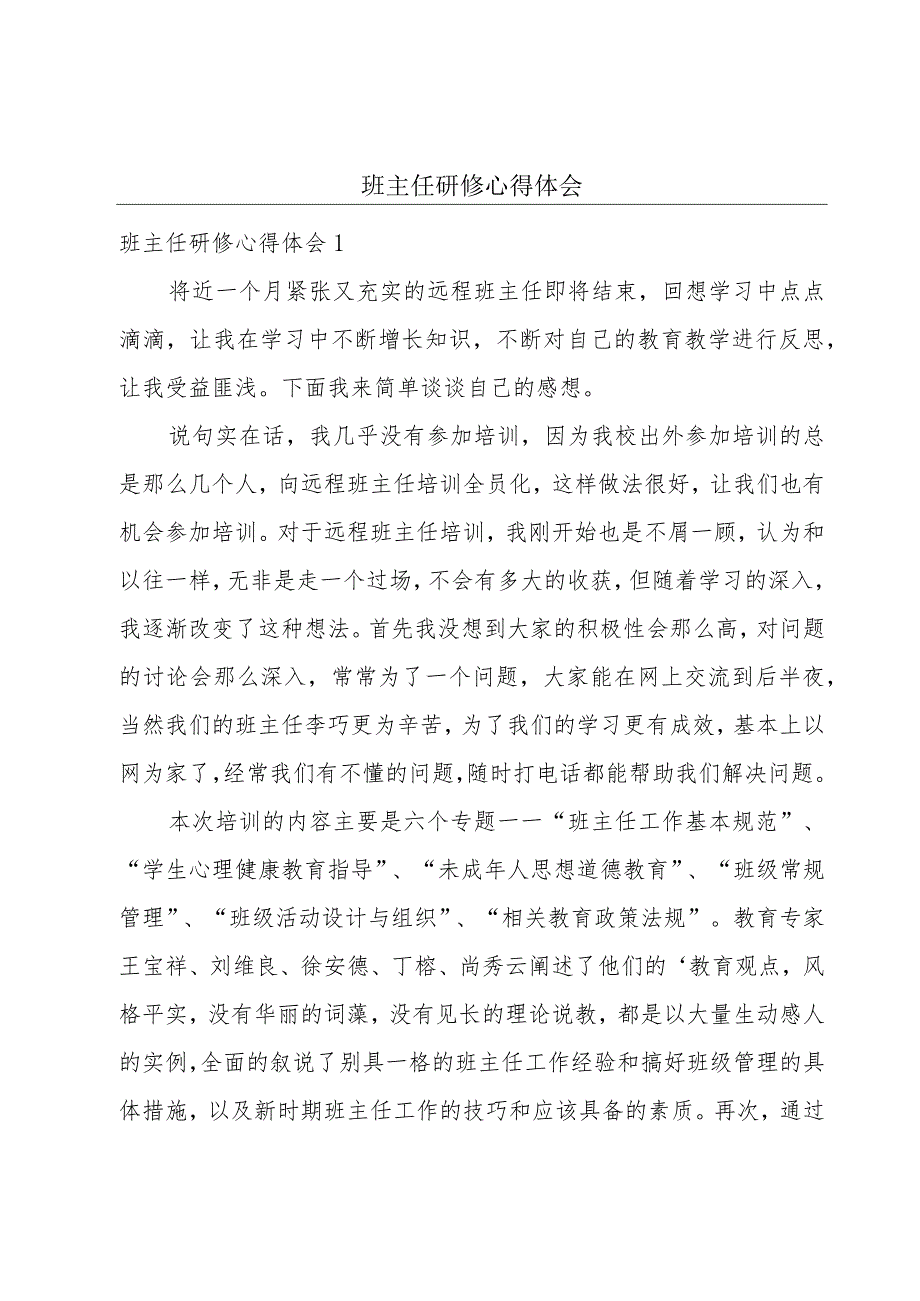 班主任研修心得体会
班主任研修心得体会 1
将近一个月紧张又充实的远程班主任即将结束，回想学习中点点
滴滴，让我在学习中不断增长知识，不断对自己的教育教学进行反思，
让我受益匪浅。下面我来简单谈谈自己的感想。
说句实在话，我几乎没有参加培训，因为我校出外参加培训的总
是那么几个人，向远程班主任培训全员化，这样做法很好，让我们也有
机会参加培训。对于远程班主任培训，我刚开始也是不屑一顾，认为和
以往一样，无非是走一个过场，不会有多大的收获，但随着学习的深入，
我逐渐改变了这种想法。首先我没想到大家的积极性会那么高，对问题
的讨论会那么深入，常常为了一个问题，大家能在网上交流到后半夜，
当然我们的班主任李巧更为辛苦，为了我们的学习更有成效，基本上以
网为家了，经常我们有不懂的问题，随时打电话都能帮助我们解决问题。
本次培训的内容主要是六个专题一一“班主任工作基本规范”、
“学生心理健康教育指导”、“未成年人思想道德教育”、“班级常规
管理”、“班级活动设计与组织”、“相关教育政策法规”。教育专家
王宝祥、刘维良、徐安德、丁榕、尚秀云阐述了他们的‘教育观点，风
格平实，没有华丽的词藻，没有见长的理论说教，都是以大量生动感人
的实例，全面的叙说了别具一格的班主任工作经验和搞好班级管理的具
体措施，以及新时期班主任工作的技巧和应该具备的素质。再次，通过